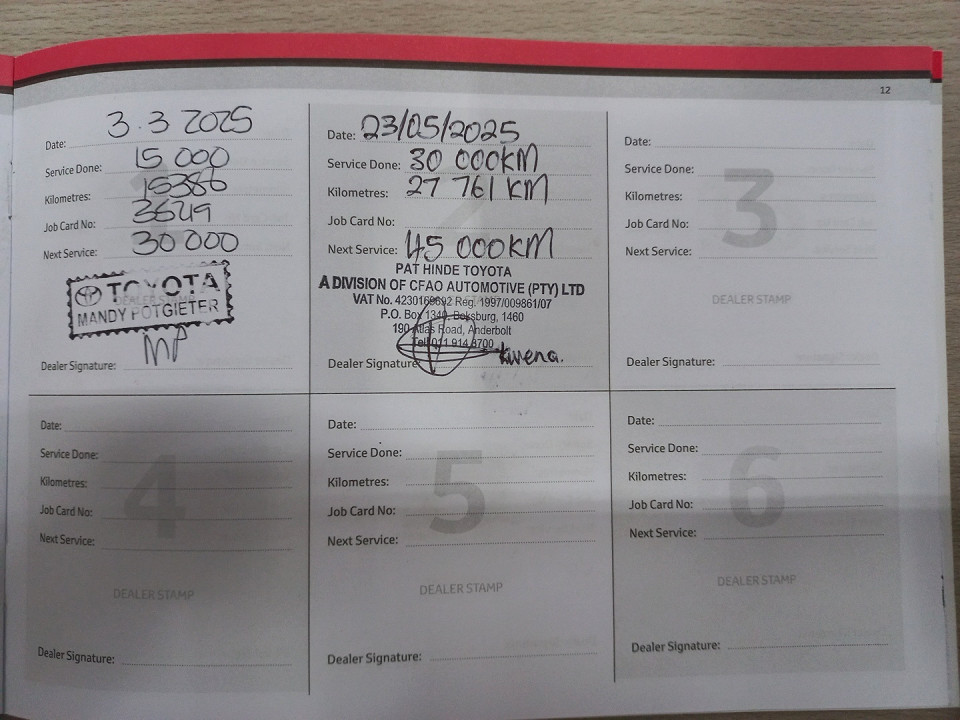 12
Date: 3.3 2025
Service Done: 15 000
Kilometres: 15386
Job Card No: 3649
Next Service: 30 000
TOYOTA
MANDY POTGIETER
MP
Dealer Signature:
Date: 23/05/2025
Service Done: 30 000KM
Kilometres: 27 761 KM
Job Card No:
Next Service: 45 000KM
PAT HINDE TOYOTA
A DIVISION OF CFAO AUTOMOTIVE (PTY) LTD
VAT No. 4230169692 Reg. 1997/009861/07
P.O. Box 1340, Boksburg, 1460
190 Atlas Road, Anderbolt
Tel: 011 914 8700
Dealer Signature:
3
Date:
Service Done:
Kilometres:
Job Card No:
Next Service:
DEALER STAMP
Dealer Signature:
4
Date:
Service Done:
Kilometres:
Job Card No:
Next Service:
DEALER STAMP
Dealer Signature:
5
Date:
Service Done:
Kilometres:
Job Card No:
Next Service:
DEALER STAMP
Dealer Signature:
6
Date:
Service Done:
Kilometres:
Job Card No:
Next Service:
DEALER STAMP
Dealer Signature: